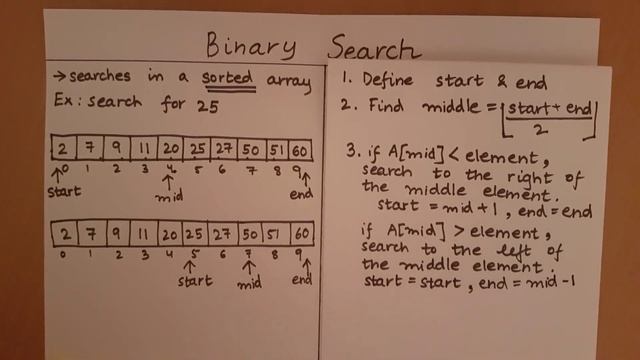 Binary Search
→ searches in a sorted array
Ex: search for 25
2 7 9 11 20 25 27 50 51 60
0 1 2 3 4 5 6 7 8 9
start mid end
2 7 9 11 20 25 27 50 51 60
0 1 2 3 4 5 6 7 8 9
start mid end
1. Define start & end
2. Find middle = ⌊start + end
2⌋
3. if A[mid] < element,
search to the right of
the middle element.
start = mid + 1, end = end
if A[mid] > element,
search to the left of
the middle element.
start = start, end = mid - 1